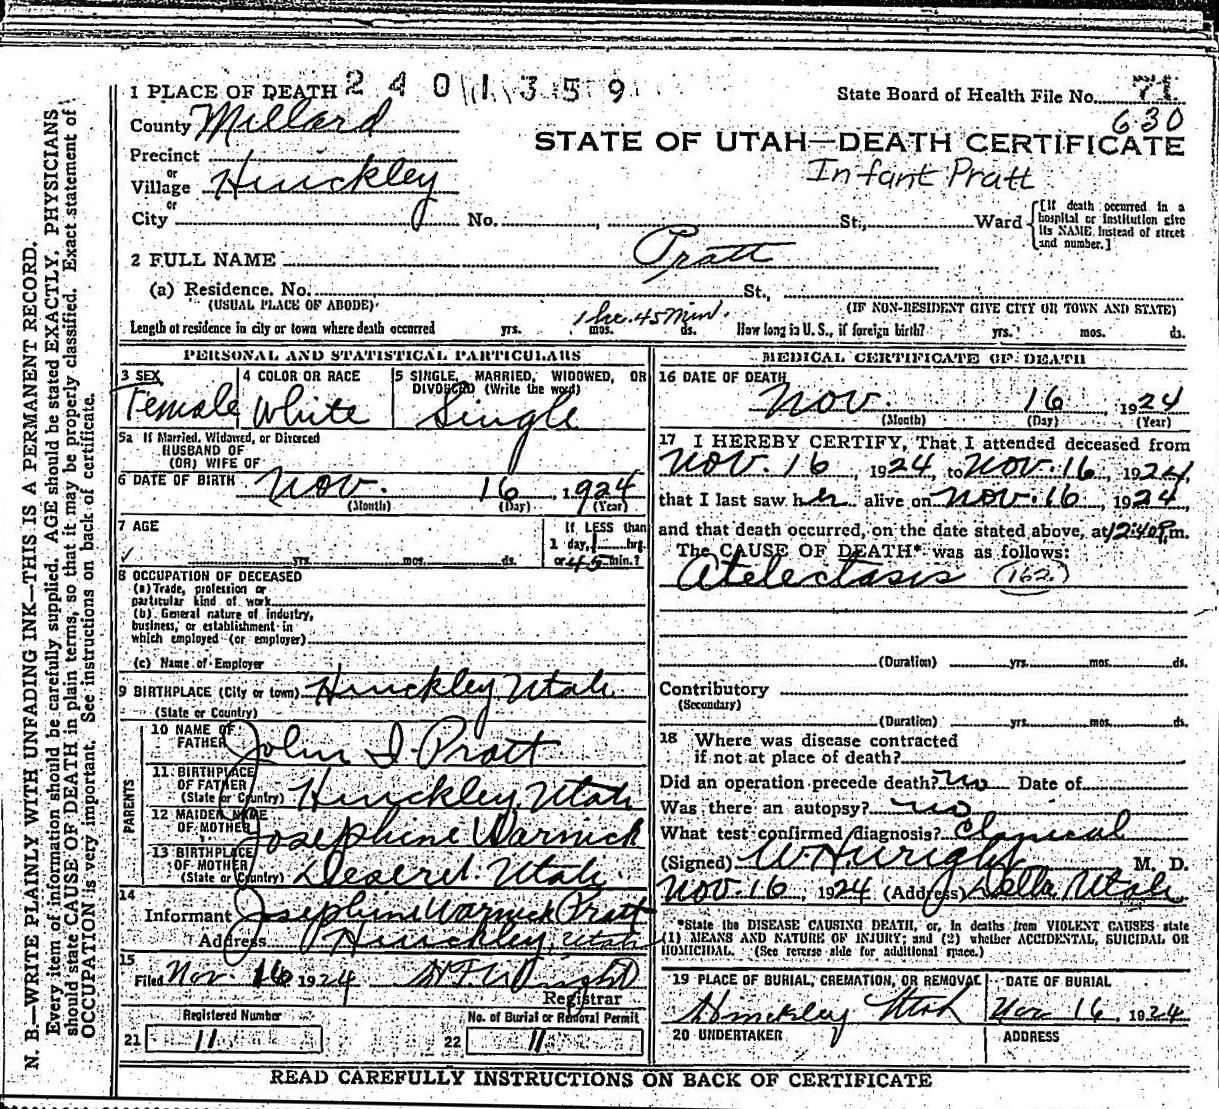 1 PLACE OF DEATH 2401359
State Board of Health File No. 71
630
County Millard
STATE OF UTAH—DEATH CERTIFICATE
Precinct
or
Village Hinckley
Infant Pratt
or
City No. , St., Ward
[If death occurred in a hospital or institution give its NAME instead of street and number.]
2 FULL NAME Pratt
(a) Residence. No. St.,
(USUAL PLACE OF ABODE) (IF NON-RESIDENT GIVE CITY OR TOWN AND STATE)
1 hr. 45 Min.
Length of residence in city or town where death occurred yrs. mos. ds. How long in U. S., if foreign birth? yrs. mos. ds.
PERSONAL AND STATISTICAL PARTICULARS
3 SEX 4 COLOR OR RACE 5 SINGLE, MARRIED, WIDOWED, OR DIVORCED (Write the word)
Female White Single
5a If Married, Widowed, or Divorced
HUSBAND OF
(OR) WIFE OF
6 DATE OF BIRTH Nov. 16, 1924
(Month) (Day) (Year)
7 AGE If LESS than
1 day, 1 hrs.
yrs. mos. ds. or 45 min.?
8 OCCUPATION OF DECEASED
(a) Trade, profession or
particular kind of work
(b) General nature of industry,
business, or establishment in
which employed (or employer)
(c) Name of Employer
9 BIRTHPLACE (City or town) Hinckley Utah
(State or Country)
PARENTS
10 NAME OF FATHER John I. Pratt
11 BIRTHPLACE OF FATHER (State or Country) Hinckley, Utah
12 MAIDEN NAME OF MOTHER Josephine Warnick
13 BIRTHPLACE OF MOTHER (State or Country) Deseret. Utah.
14
Informant Josephine Warnick Pratt
Address Hinckley, Utah
15
Filed Nov. 16 1924 Wright
Registrar
Registered Number No. of Burial or Removal Permit
21 11 22 11
MEDICAL CERTIFICATE OF DEATH
16 DATE OF DEATH
Nov. 16, 1924
(Month) (Day) (Year)
17 I HEREBY CERTIFY, That I attended deceased from
Nov. 16, 1924, to Nov. 16, 1924,
that I last saw her alive on Nov. 16, 1924
and that death occurred, on the date stated above, at 12:40 P. m.
The CAUSE OF DEATH* was as follows:
Atelectasis (162.)
(Duration) yrs. mos. ds.
Contributory
(Secondary)
(Duration) yrs. mos. ds.
18 Where was disease contracted
if not at place of death?
Did an operation precede death? no Date of
Was there an autopsy? no
What test confirmed diagnosis? Clinical
(Signed) Wright M. D.
Nov. 16, 1924 (Address) Delta Utah
*State the DISEASE CAUSING DEATH, or, in deaths from VIOLENT CAUSES state
(1) MEANS AND NATURE OF INJURY; and (2) whether ACCIDENTAL, SUICIDAL OR
HOMICIDAL. (See reverse side for additional space.)
19 PLACE OF BURIAL, CREMATION, OR REMOVAL DATE OF BURIAL
Hinckley Utah Nov 16, 1924
20 UNDERTAKER ADDRESS
READ CAREFULLY INSTRUCTIONS ON BACK OF CERTIFICATE
N. B.—WRITE PLAINLY WITH UNFADING INK—THIS IS A PERMANENT RECORD.
Every item of information should be carefully supplied. AGE should be stated EXACTLY. PHYSICIANS
should state CAUSE OF DEATH in plain terms, so that it may be properly classified. Exact statement of
OCCUPATION is very important. See instructions on back of certificate.